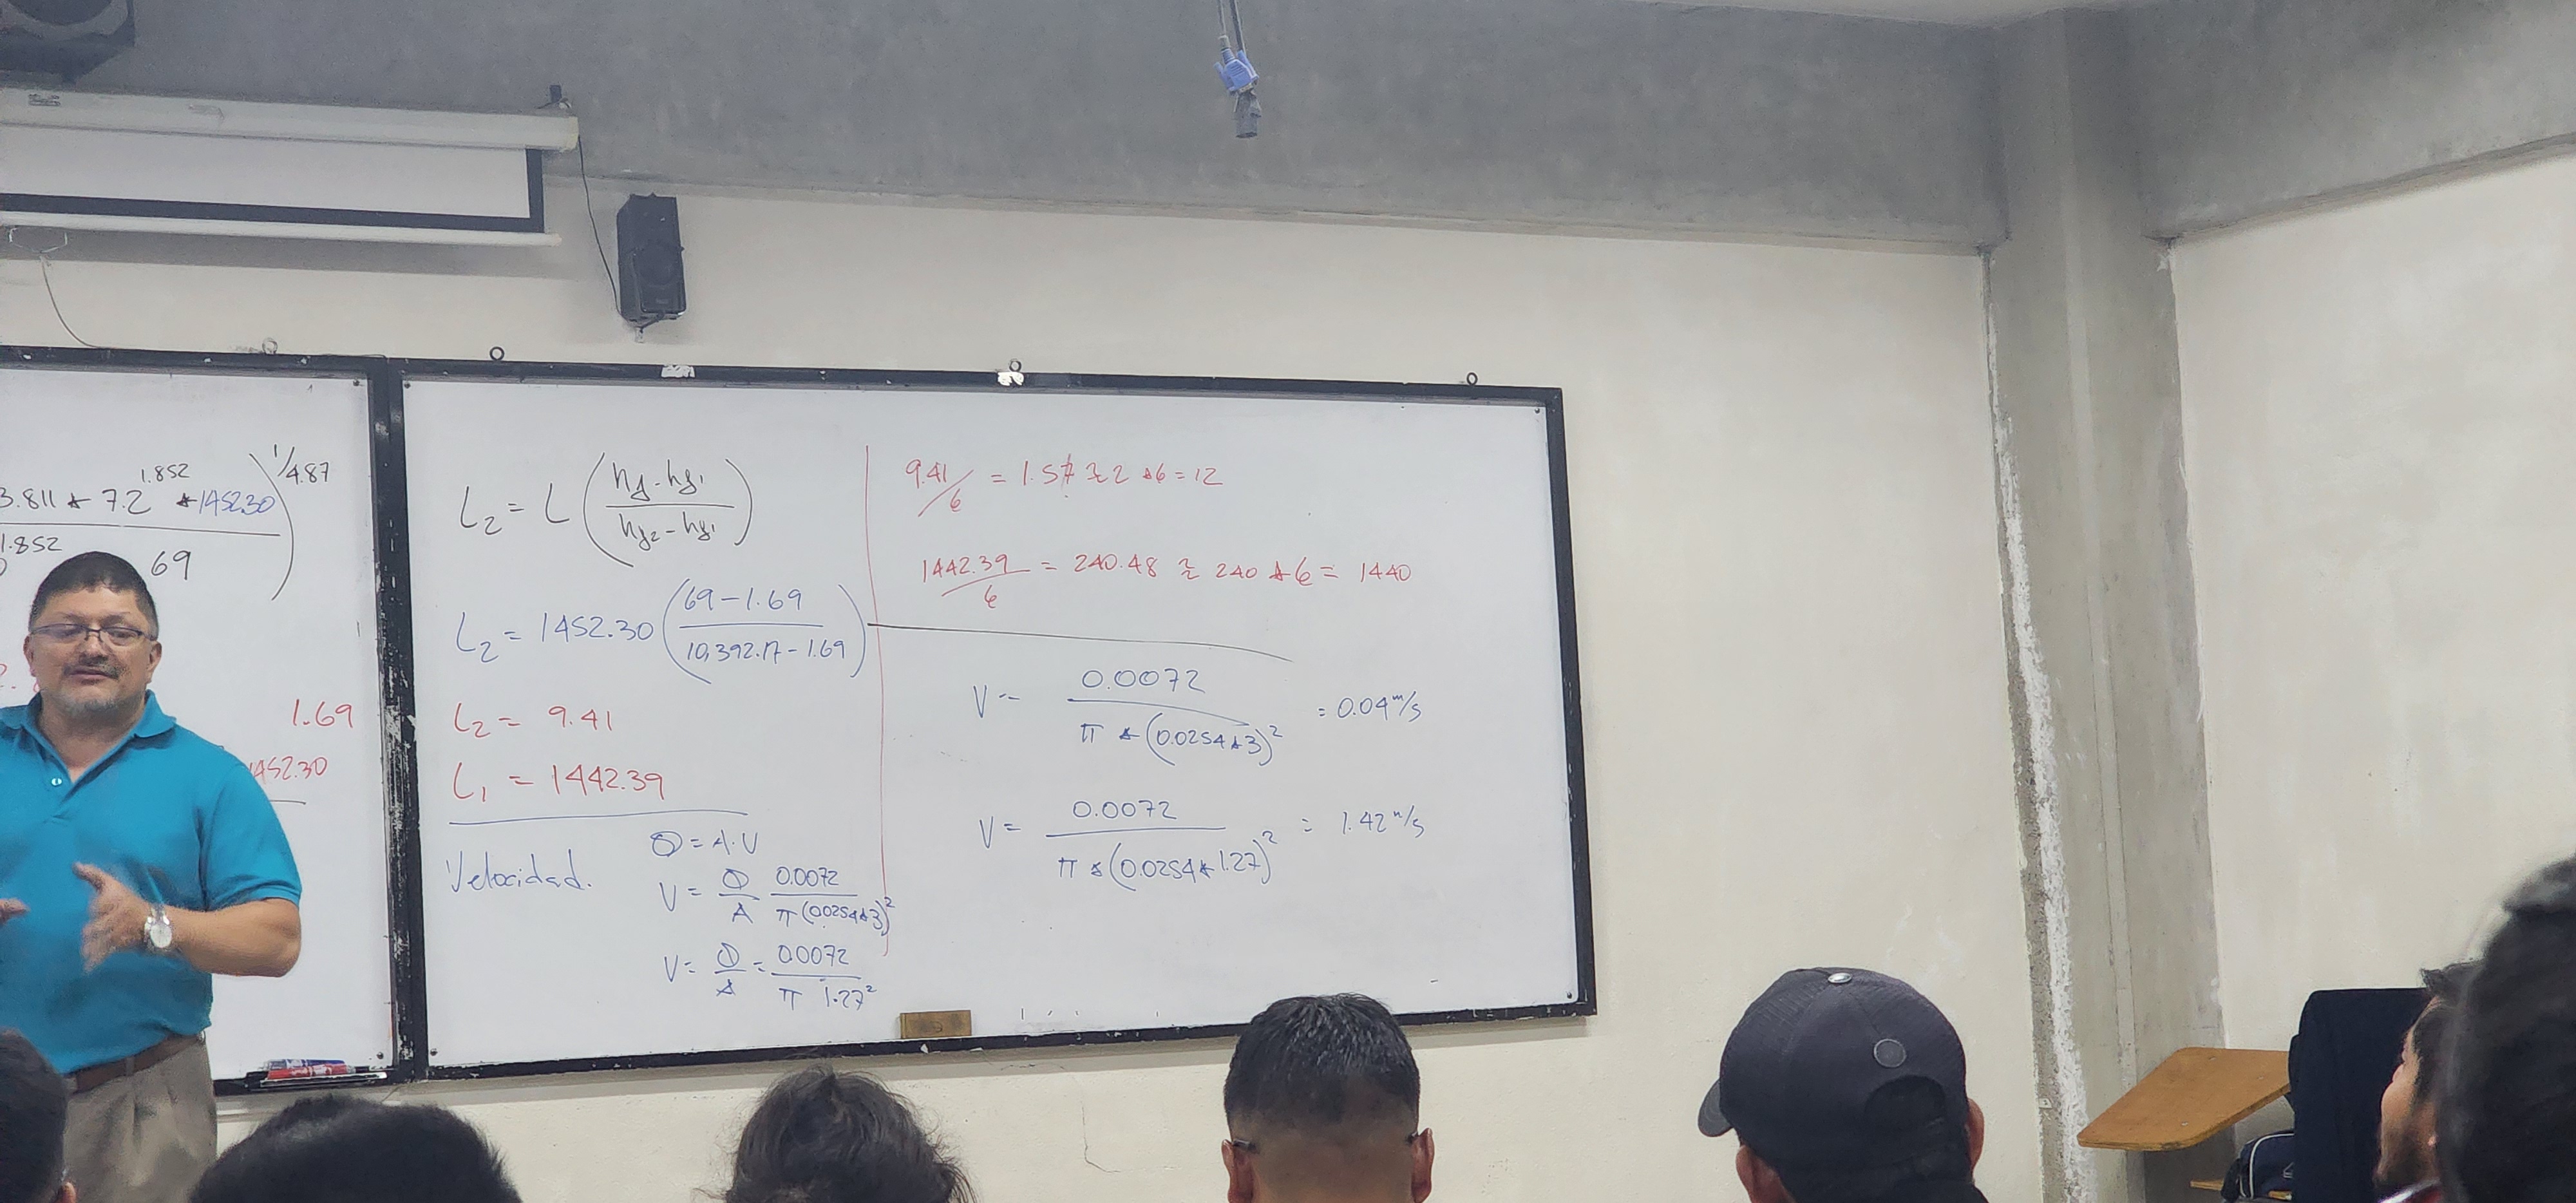 1.852
1/4.87
3.811 * 7.2 *1452.30
1.852
69
1.69
1452.30
L₂ = L (hf - hf₁ / hf₂ - hf₁)
L₂ = 1452.30 (69 - 1.69 / 10,392.17 - 1.69)
L₂ = 9.41
L₁ = 1442.39
Velocidad.
Q = A.V
V = Q/A 0.0072 / π (0.0254*3)²
V = Q/A = 0.0072 / π 1.27²
9.41/6 = 1.57 ≈ 2 *6 = 12
1442.39/6 = 240.48 ≈ 240 * 6 = 1440
V = 0.0072 / π * (0.0254*3)² = 0.04 m/s
V = 0.0072 / π * (0.0254*1.27)² = 1.42 m/s